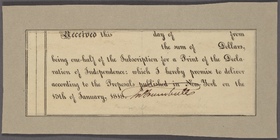 Received this day of from
the sum of Dollars,
being one-half of the Subscription for a Print of the Decla-
ration of Independence; which I hereby promise to deliver
according to the Proposals published in New York on the
19th of January, 1818. Jn Trumbull